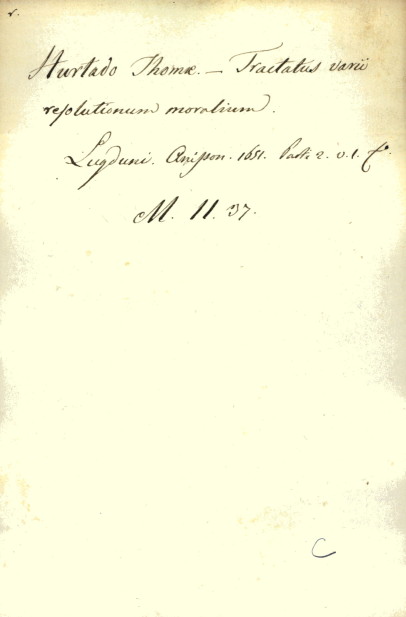 r.
Hurtado Thomæ. — Tractatus varii
resolutionum moralium.
Lugduni. Anisson. 1651. Part. 2. v. 1. fº.
M. 11. 37.
C